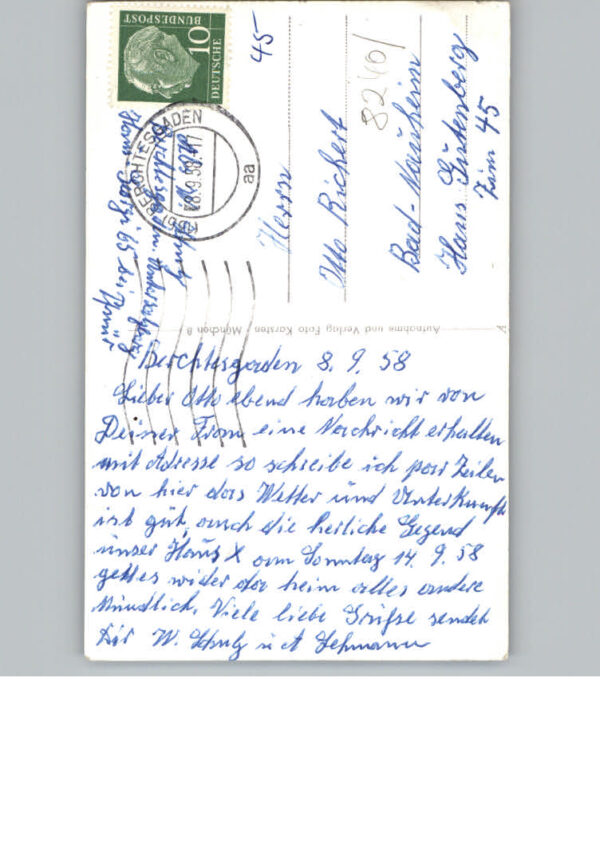 DEUTSCHE
BUNDESPOST
10
BERCHTESGADEN
-8.9.58.-17
aa
45
8240/
Herrn
Otto Richert
Bad-Nauheim
Haus Gutenberg
Zim 45
Aufnahme und Verlag Foto Karsten · München 8
Berchtesgaden 8. 9. 58
Lieber Otto ebend haben wir von
Deiner Frau eine Nachricht erhalten
mit Adresse so schreibe ich paar Zeilen
von hier das Wetter und Unterkunft
ist gut, auch die herliche Gegend
unser Haus X am Sonntag 14. 9. 58
geht es wider da heim alles andere
Mündlich. Viele liebe Grüße sendet
Dir W. Schulz u. A Lehmann